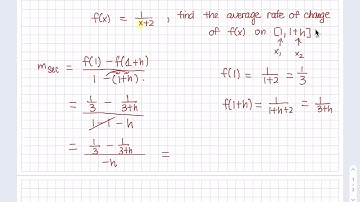 f(x) = 1/(x+2) , find the average rate of change
of f(x) on [1, 1+h]
x₁ x₂
m sec = (f(1) - f(1+h))/(1 - (1+h))
f(1) = 1/(1+2) = 1/3
= (1/3 - 1/(3+h))/(1 - 1 - h)
f(1+h) = 1/(1+h+2) = 1/(3+h)
= (1/3 - 1/(3+h))/(-h) =